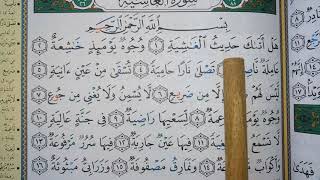 سورة الغاشية
بِسْمِ ٱللَّهِ ٱلرَّحْمَٰنِ ٱلرَّحِيمِ
هَلْ أَتَىٰكَ حَدِيثُ ٱلْغَٰشِيَةِ ١ وُجُوهٌ يَوْمَئِذٍ خَٰشِعَةٌ ٢
عَامِلَةٌ نَّاصِبَةٌ تَصْلَىٰ نَارًا حَامِيَةً ٤ تُسْقَىٰ مِنْ عَيْنٍ ءَانِيَةٍ ٥
لَّيْسَ لَهُمْ إِلَّا مِن ضَرِيعٍ ٦ لَّا يُسْمِنُ وَلَا يُغْنِي مِن جُوعٍ ٧
وُجُوهٌ يَوْمَئِذٍ ٨ لِّسَعْيِهَا رَاضِيَةٌ ٩ فِي جَنَّةٍ عَالِيَةٍ ١٠
لَّا تَسْمَعُ ١١ فِيهَا عَيْنٌ جَارِيَةٌ ١٢ فِيهَا سُرُرٌ مَّرْفُوعَةٌ ١٣
وَأَكْوَابٌ ١٤ وَنَمَارِقُ مَصْفُوفَةٌ ١٥ وَزَرَابِيُّ مَبْثُوثَةٌ ١٦